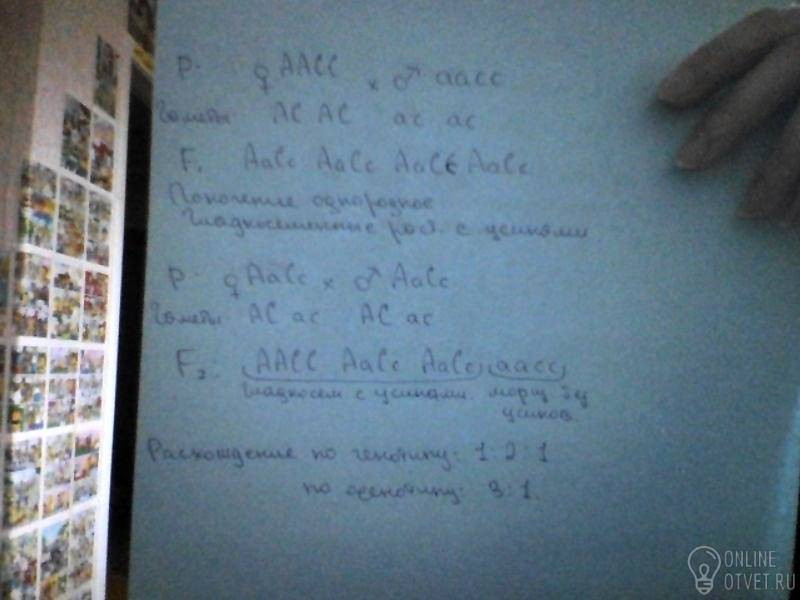 P. ♀ AACC × ♂ aacc
Гаметы AC AC ac ac
F₁ AaCc AaCc AaCc AaCc
Поколение однородное
Гладкосеменные раст. с усиками
P. ♀ AaCc × ♂ AaCc
Гаметы AC ac AC ac
F₂: AACC AaCc AaCc aacc
гладкосем с усиками. морщ без
усиков
Расхождение по генотипу: 1:2:1
по фенотипу: 3:1
ONLINE
OTVET.RU